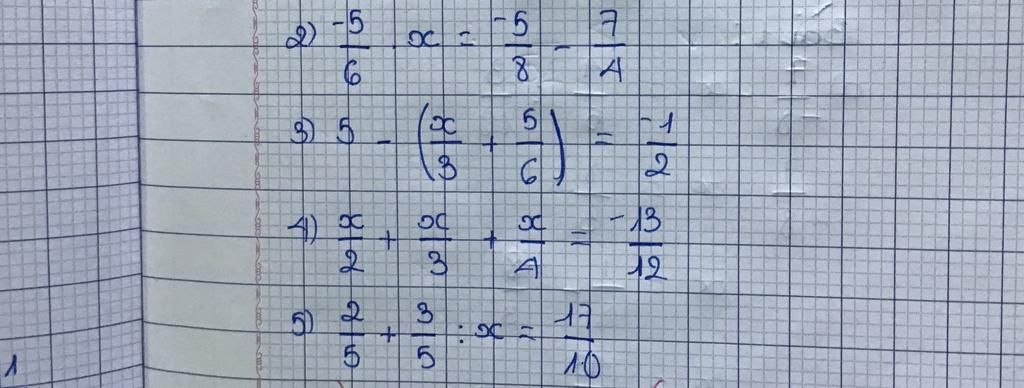 2) -5/6 x = -5/8 - 7/4
3) 5 - (x/3 + 5/6) = -1/2
4) x/2 + x/3 + x/4 = -13/12
5) 2/5 + 3/5 : x = 17/10
1